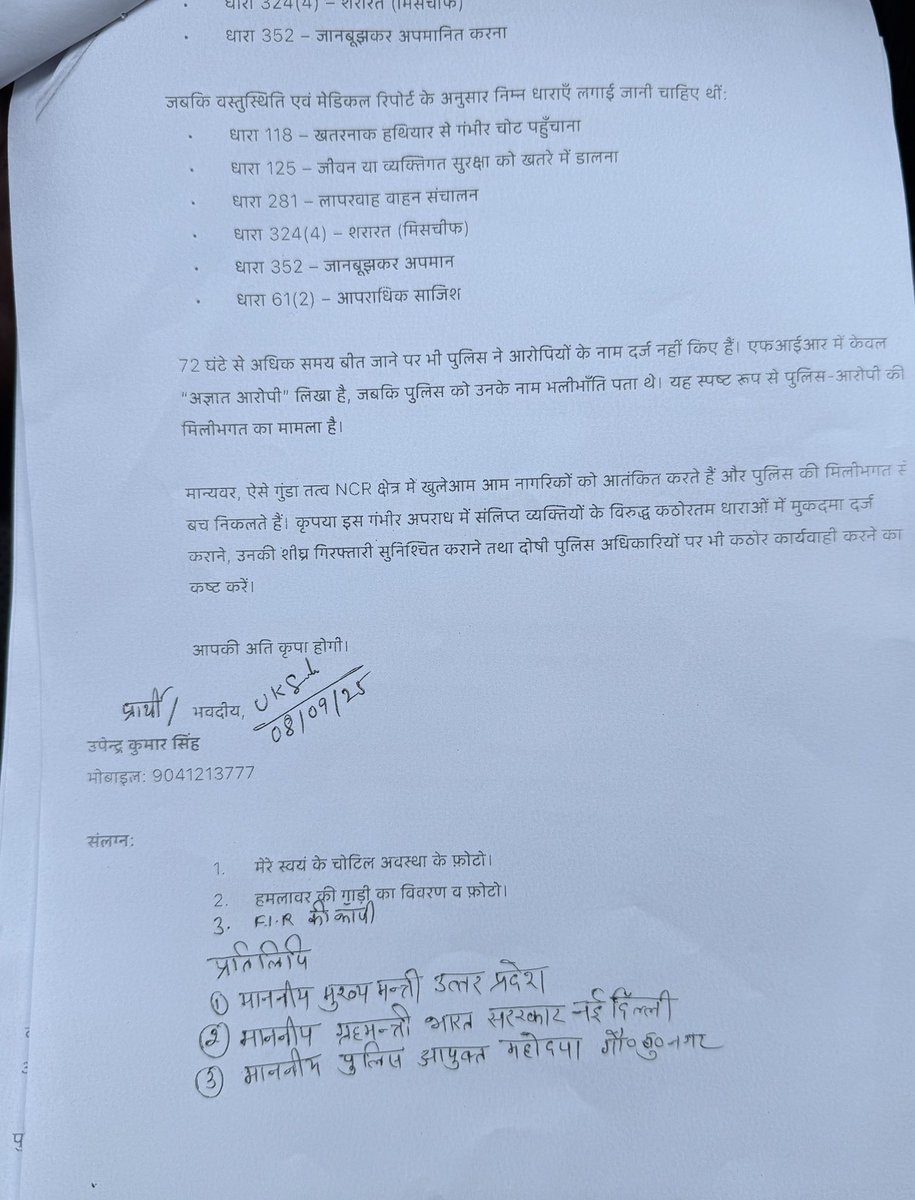 धारा 324(4) – शरारत (मिसचीफ)
• धारा 352 – जानबूझकर अपमानित करना
जबकि वस्तुस्थिति एवं मेडिकल रिपोर्ट के अनुसार निम्न धाराएँ लगाई जानी चाहिए थीं:
• धारा 118 – खतरनाक हथियार से गंभीर चोट पहुँचाना
• धारा 125 – जीवन या व्यक्तिगत सुरक्षा को खतरे में डालना
• धारा 281 – लापरवाह वाहन संचालन
• धारा 324(4) – शरारत (मिसचीफ)
• धारा 352 – जानबूझकर अपमान
• धारा 61(2) – आपराधिक साजिश
72 घंटे से अधिक समय बीत जाने पर भी पुलिस ने आरोपियों के नाम दर्ज नहीं किए हैं। एफआईआर में केवल
"अज्ञात आरोपी" लिखा है, जबकि पुलिस को उनके नाम भलीभाँति पता थे। यह स्पष्ट रूप से पुलिस-आरोपी की
मिलीभगत का मामला है।
मान्यवर, ऐसे गुंडा तत्व NCR क्षेत्र में खुलेआम आम नागरिकों को आतंकित करते हैं और पुलिस की मिलीभगत से
बच निकलते हैं। कृपया इस गंभीर अपराध में संलिप्त व्यक्तियों के विरुद्ध कठोरतम धाराओं में मुकदमा दर्ज
कराने, उनकी शीघ्र गिरफ्तारी सुनिश्चित कराने तथा दोषी पुलिस अधिकारियों पर भी कठोर कार्यवाही करने का
कष्ट करें।
आपकी अति कृपा होगी।
प्रार्थी / भवदीय, U K Singh
08/09/25
उपेन्द्र कुमार सिंह
मोबाइल: 9041213777
संलग्न:
1. मेरे स्वयं के चोटिल अवस्था के फ़ोटो।
2. हमलावर की गाड़ी का विवरण व फ़ोटो।
3. F.I.R की कॉपी
प्रतिलिपि
① माननीय मुख्य मन्त्री उत्तर प्रदेश
② माननीय ग्रहमन्त्री भारत सरकार नई दिल्ली
③ माननीय पुलिस आयुक्त महोदया गौ० बु० नगर
पु